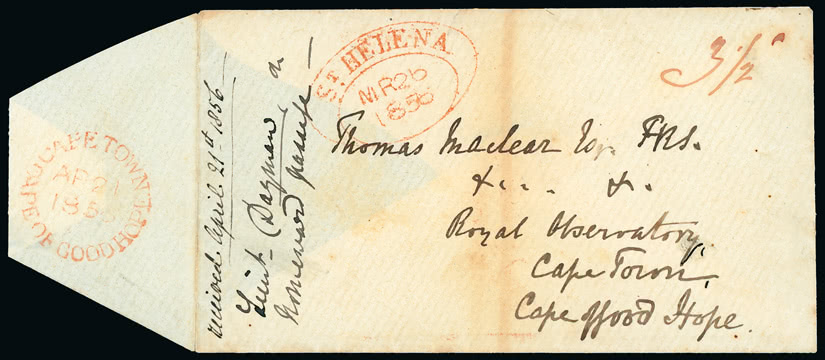 CAPE TOWN
AP 21
1856
CAPE OF GOOD HOPE
received April 21st 1856
Lieut. Dayman, on
homeward passage
ST HELENA
MR 26
1856
3/2
Thomas Maclear Esq. FRS.
&.. . &.
Royal Observatory
Cape Town
Cape of Good Hope.